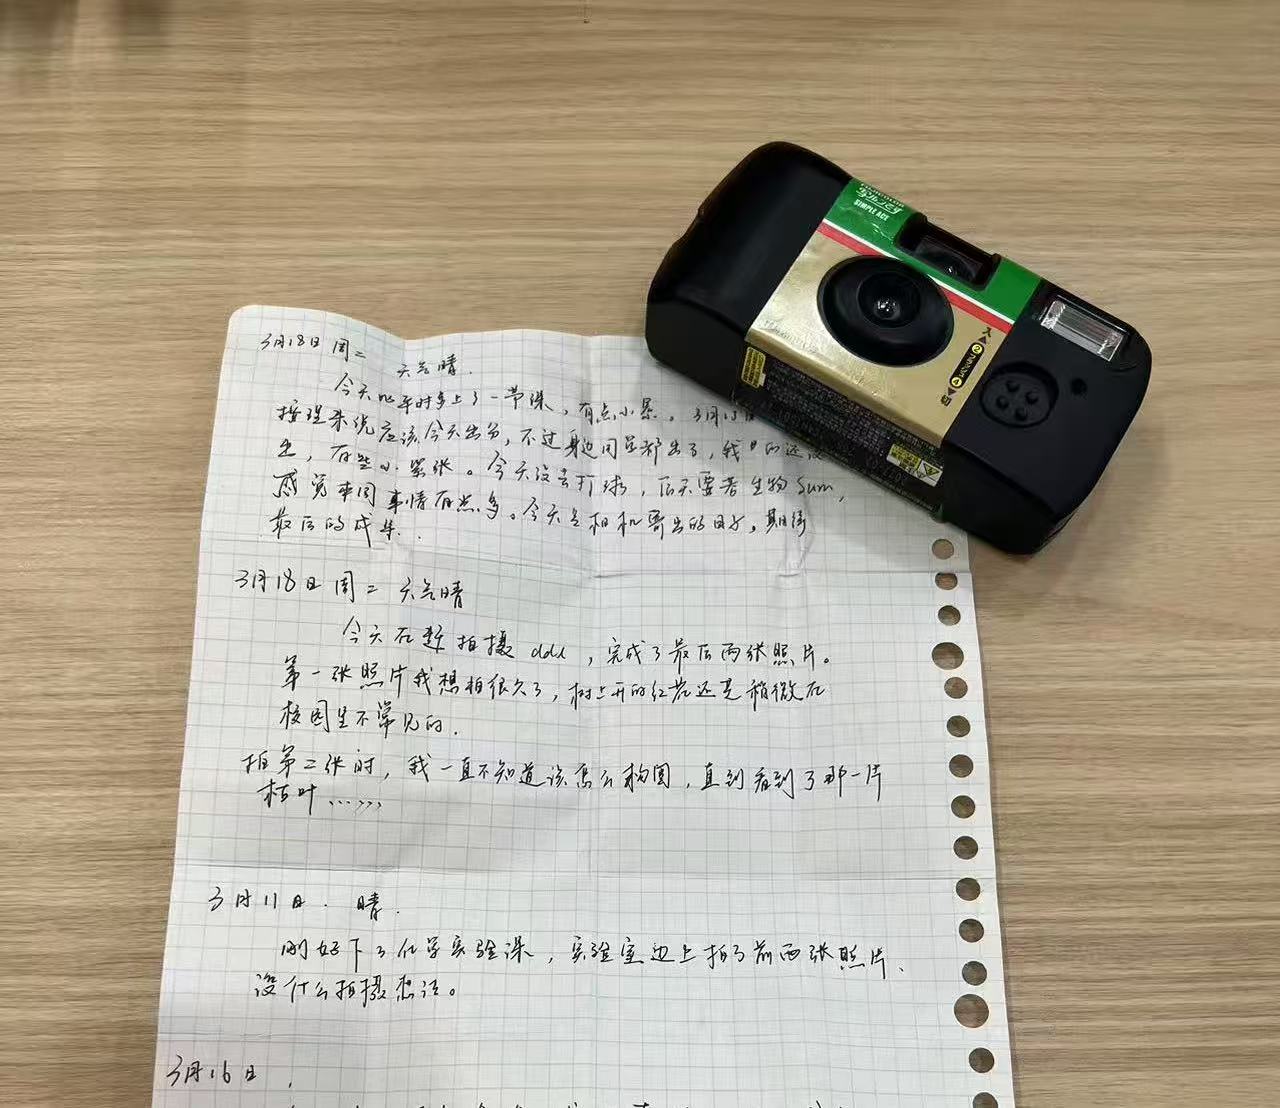 写ルンです
SIMPLE ACE
3月18日 周二 天气晴.
今天比平时多上了一节课，有点小累。3月13日
按理来说应该今天出分，不过身边同学都出了，我的还没
出，有些小紧张。今天没去打球，后天要考生物 sum，
感觉本周事情有点多。今天是相机寄出的日子，期待
最后的成果.
3月18日 周二 天气晴
今天在赶拍摄 ddl，完成了最后两张照片。
第一张照片我想拍很久了，树上开的红花还是稍微在
校园里不常见的.
拍第二张时，我一直不知道该怎么构图，直到看到了那一片
枯叶……
3月11日. 晴.
刚好下了化学实验课，实验室边上拍了前两张照片、
没什么拍摄想法。
3月16日，